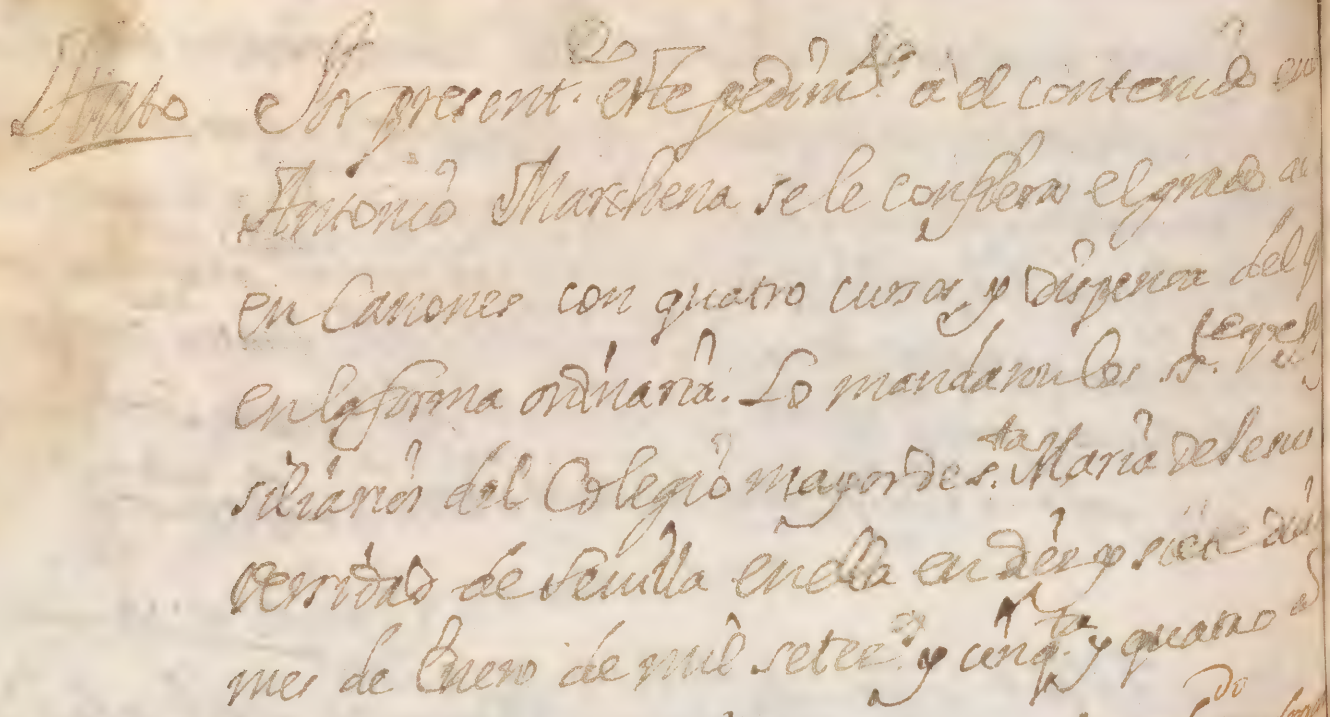 Auto
Por present.do este pedim.to a el contenido en
Antonio Marchena se le confiera el grado
en Canones con quatro cursos, y dispensa del
en la forma ordinaria. Lo mandaron los ss.res
siliarios del Colegio mayor de s.ta Maria de Jesu
versidad de Sevilla en ella en diez y siete dias
mes de Enero de mil setez.os y cinq.ta y quatro a
do